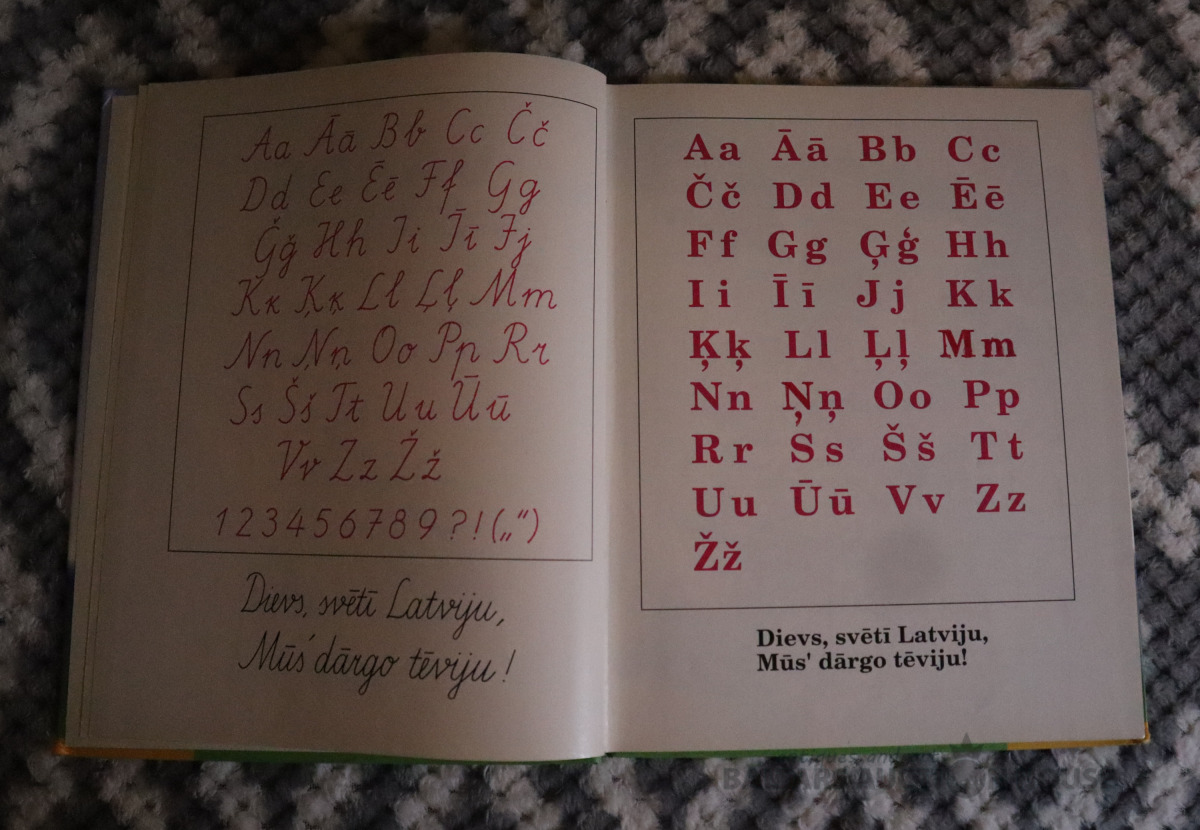 Aa Āā Bb Cc Čč
Dd Ee Ēē Ff Gg
Ģģ Hh Ii Īī Jj
Kk Ķķ Ll Ļļ Mm
Nn Ņņ Oo Pp Rr
Ss Šš Tt Uu Ūū
Vv Zz Žž
1 2 3 4 5 6 7 8 9 ? ! („“)
Dievs, svētī Latviju,
Mūs' dārgo tēviju!
Aa Āā Bb Cc
Čč Dd Ee Ēē
Ff Gg Ģģ Hh
Ii Īī Jj Kk
Ķķ Ll Ļļ Mm
Nn Ņņ Oo Pp
Rr Ss Šš Tt
Uu Ūū Vv Zz
Žž
Dievs, svētī Latviju,
Mūs' dārgo tēviju!